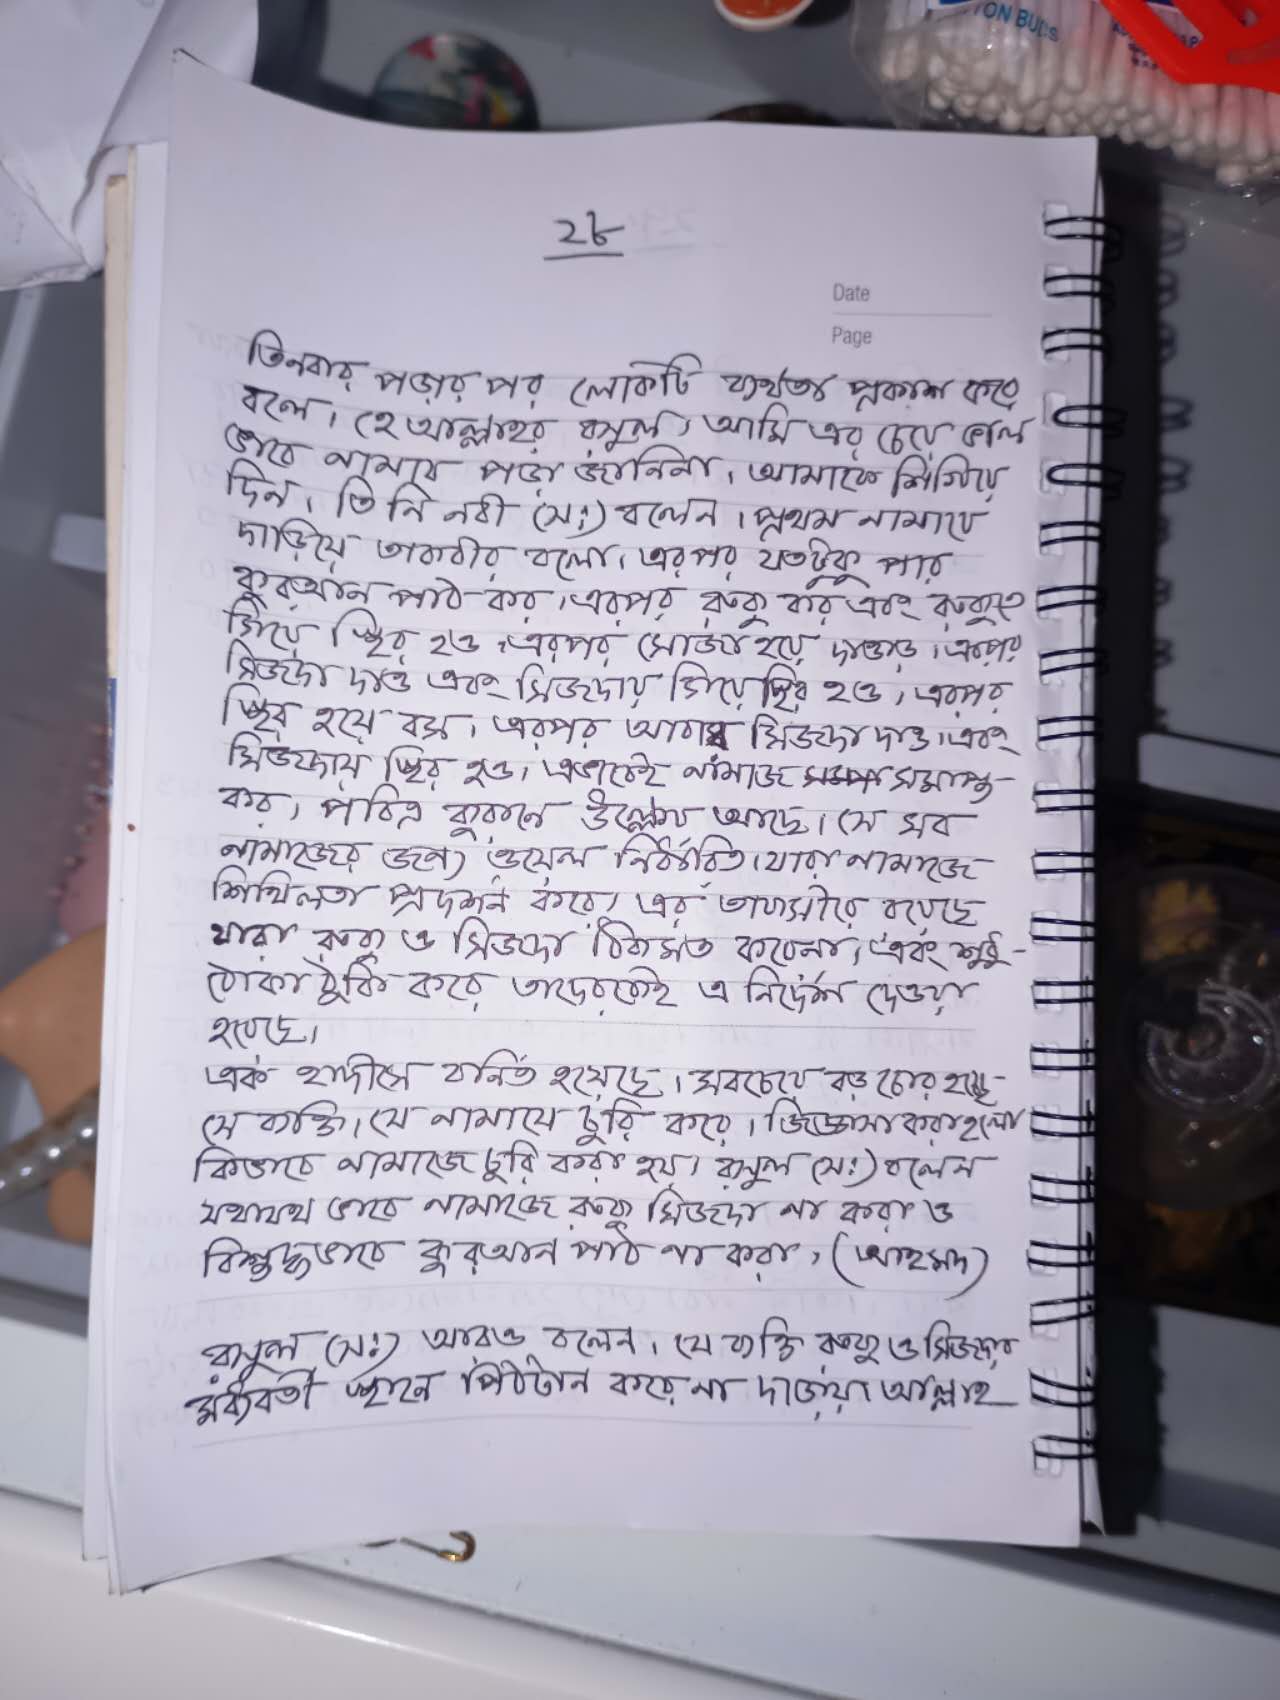 ON BUDS
২৮
Date
Page
তিনবার পড়ার পর লোকটি ব্যর্থতা প্রকাশ করে
বলে। হে আল্লাহর রাসুল। আমি এর চেয়ে ভাল
ভাবে নামায পড়া জানিনা। আমাকে শিখিয়ে
দিন। তিনি নবী (স:) বলেন। প্রথম নামাযে
দাড়িয়ে তাকবীর বলো। এরপর যতটুকু পার
কুরআন পাঠ কর। এরপর রুকু কর এবং রুকুতে
গিয়ে স্থির হও। এরপর সোজা হয়ে দাড়াও। এরপর
সিজদা দাও এবং সিজদায় গিয়ে স্থির হও। এরপর
স্থির হয়ে বস। এরপর আবার সিজদা দাও। এবং
সিজদায় স্থির হও। এভাবেই নামাজ সমাপ্ত-
কর। পবিত্র কুরানে উল্লেখ আছে। সে সব
নামাজের জন্য ওয়েল নির্ধারিত। যারা নামাজে
শিথিলতা প্রদর্শন করে। এর তাফসীরে রয়েছে
যারা রুকু ও সিজদা ঠিকমত করেনা। এবং শুধু-
ঠোকা ঠুকি করে তাদেরকেই এ নির্দেশ দেওয়া
হয়েছে।
এক হাদীসে বর্নিত হয়েছে। সবচেয়ে বড় চোর হচ্ছে-
সে ব্যক্তি। যে নামাযে চুরি করে। জিজ্ঞাসা করা হলো
কিভাবে নামাজে চুরি করা হয়। রাসুল (স:) বলেন
যথাযথ ভাবে নামাজে রুকু সিজদা না করা ও
বিশুদ্ধভাবে কুরআন পাঠ না করা। (আহমদ)
রাসুল (স:) আরও বলেন। যে ব্যক্তি রুকু ও সিজদার
মধ্যবর্তী স্থানে পিঠটান করে না দাড়ায়। আল্লাহ